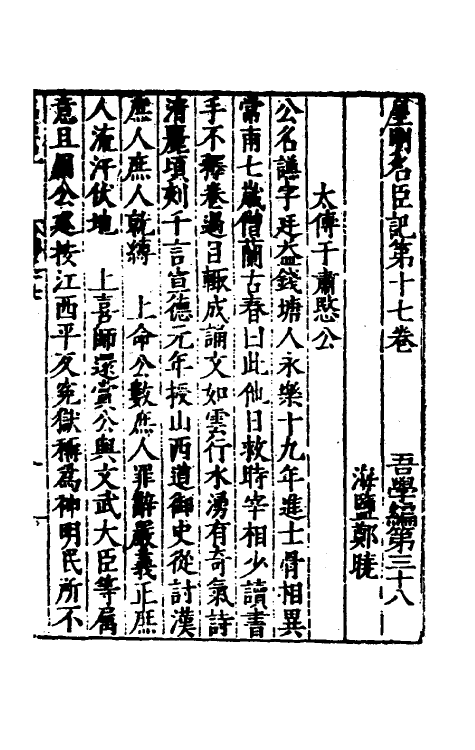 皇明名臣記第十七卷　吾學編第三十八
海鹽鄭曉
太傅于肅愍公
公名謙字廷益錢塘人永樂十九年進士骨相異
常甫七歲僧蘭古春曰此他日救時宰相少讀書
手不釋卷過目輒成誦文如雲行水湧有奇氣詩
清麗頃刻千言宣德元年授山西道御史從討漢
庶人庶人就縛　上命公數庶人罪辭嚴義正庶
人流汗伏地　上喜師還賞公與文武大臣等屬
意且顯公巡按江西平反冤獄稱為神明民所不